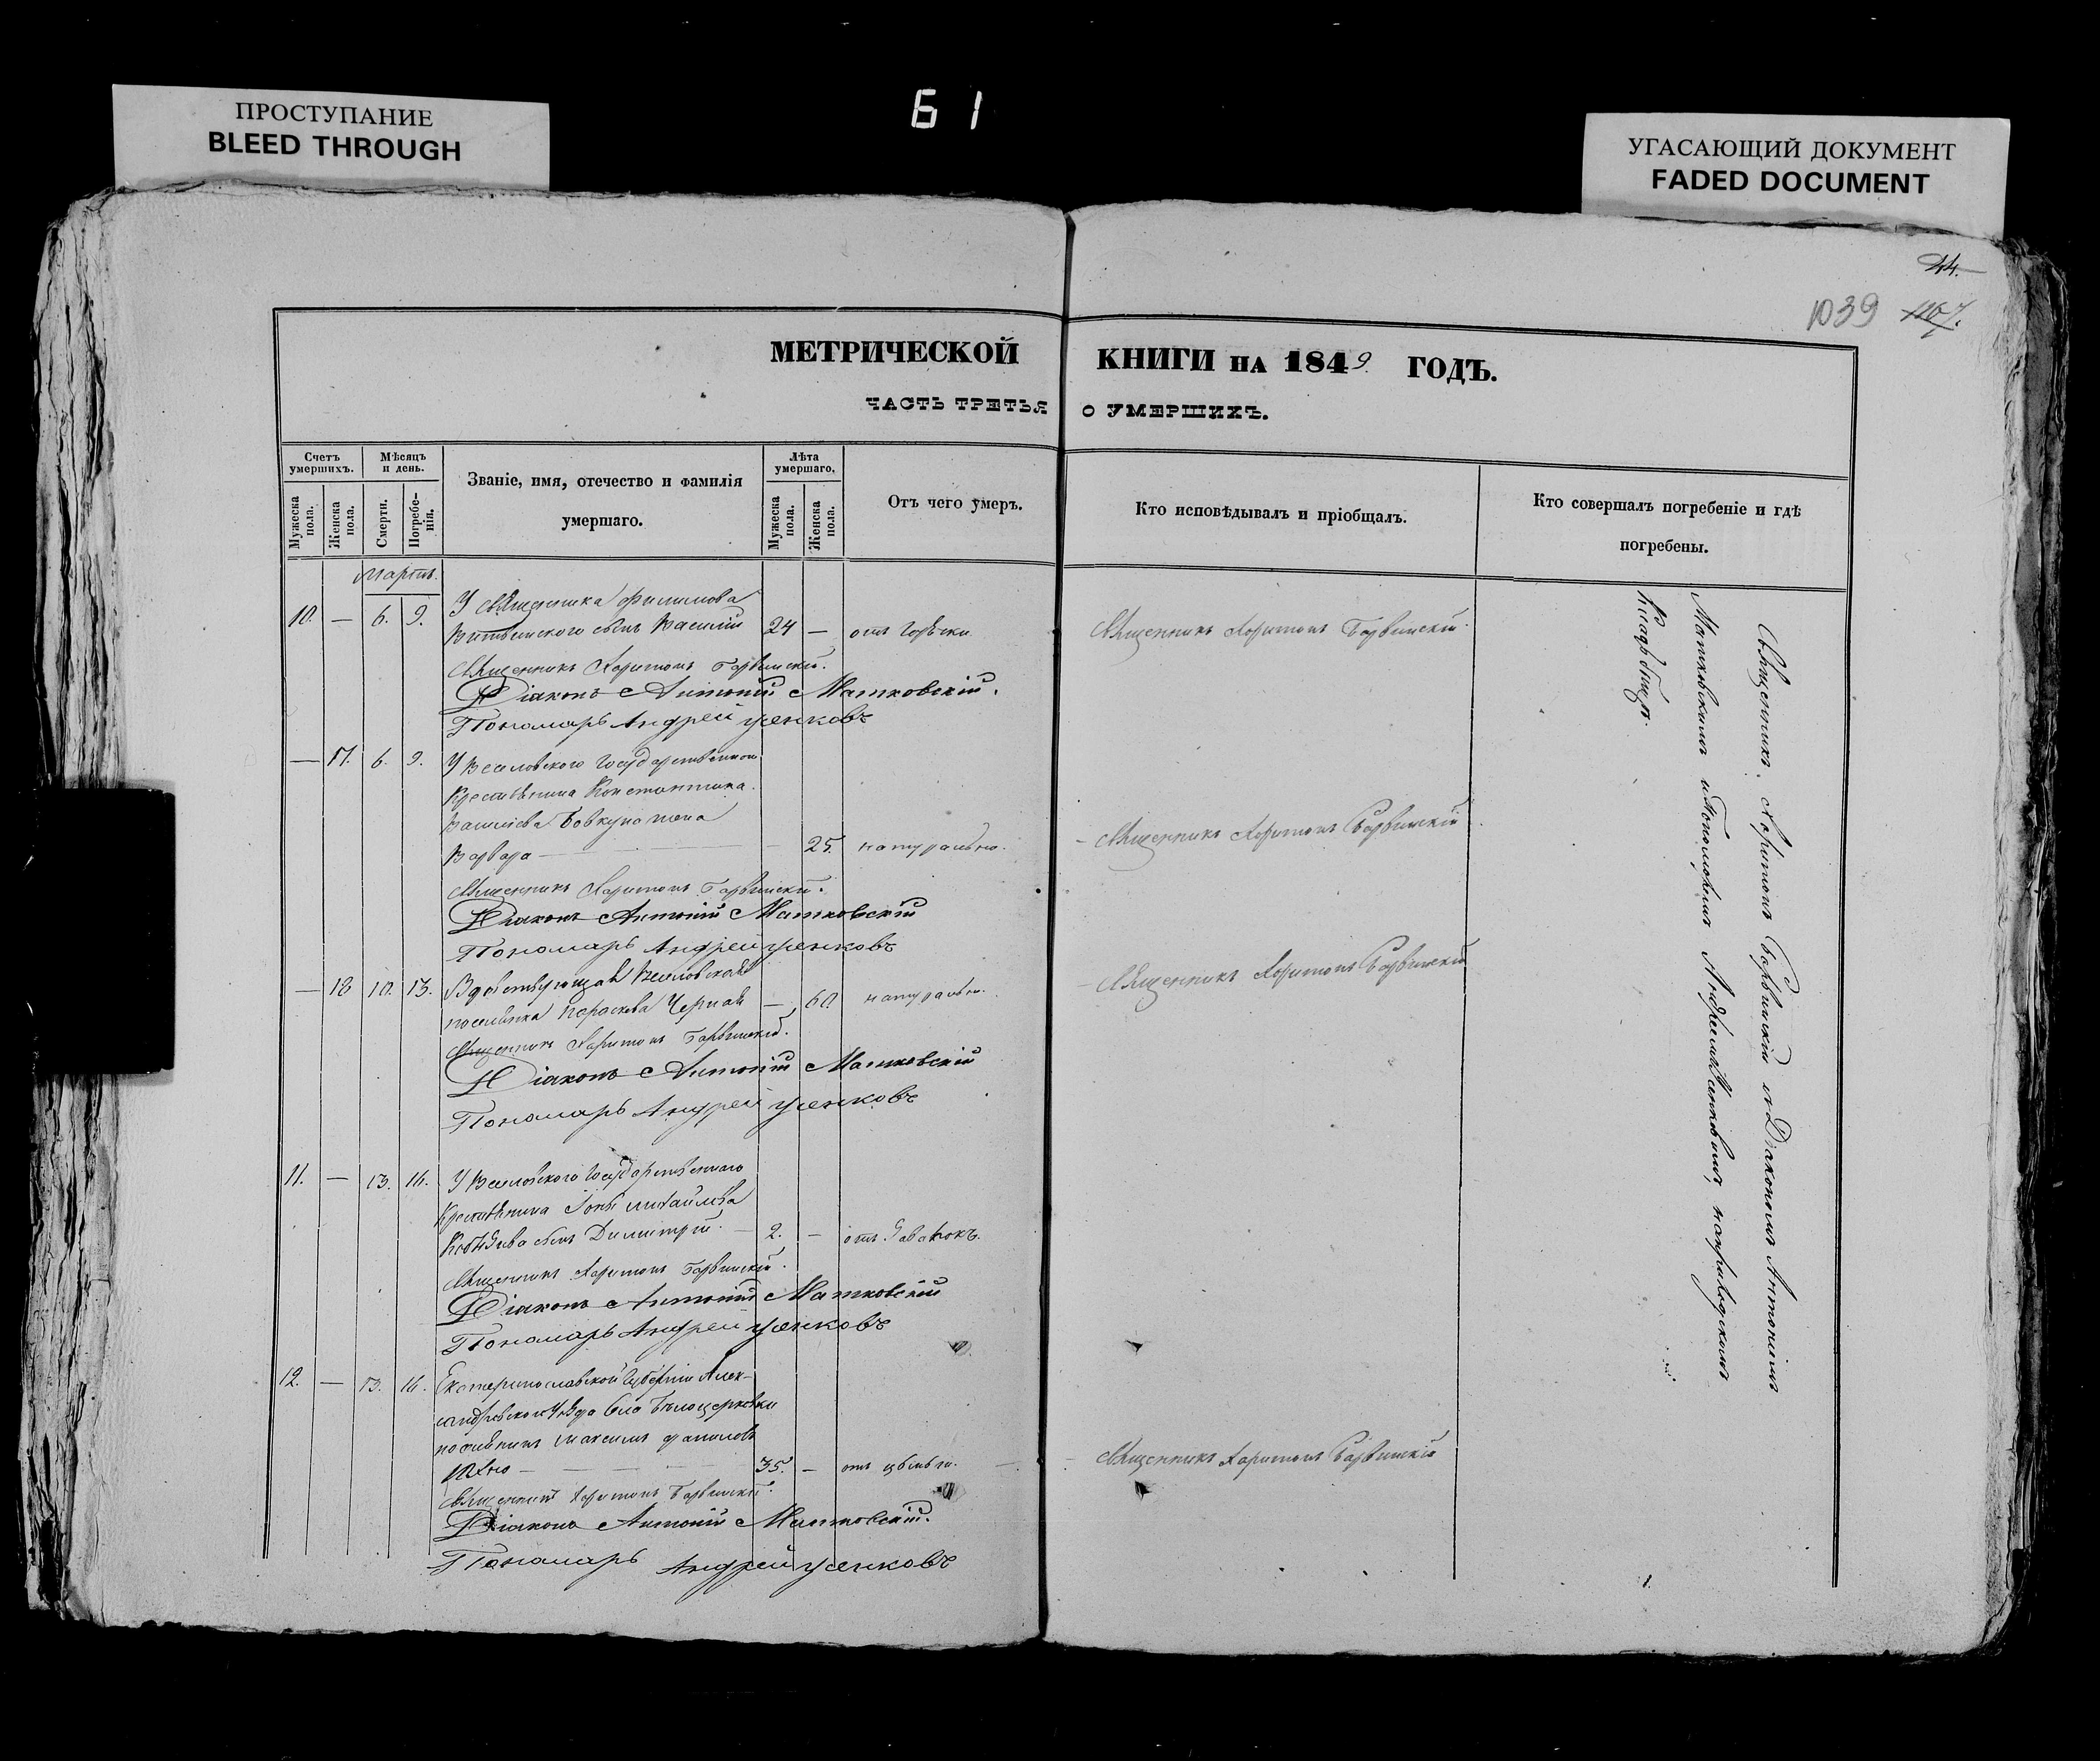 ПРОСТУПАНИЕ
BLEED THROUGH
61
УГАСАЮЩИЙ ДОКУМЕНТ
FADED DOCUMENT
44.
1039 1167.
МЕТРИЧЕСКОЙ КНИГИ НА 1849 ГОДЪ.
ЧАСТЬ ТРЕТЬЯ О УМЕРШИХЪ.
Счетъ умершихъ.
Мужеска пола.
Женска пола.
Мѣсяцъ и день.
Смерти.
Погребе-нія.
Званіе, имя, отечество и фамилія
умершаго.
Лѣта умершаго.
Мужеска пола.
Женска пола.
Отъ чего умеръ.
Кто исповѣдывалъ и пріобщалъ.
Кто совершалъ погребеніе и гдѣ
погребены.
Мартъ.
10. — 6. 9. У Священника Филимова
сынъ Василій 24 — отъ горячки Священникъ Харитонъ Барвинскій
Священникъ Харитонъ Барвинскій.
Діаконъ Антоній Матковскій.
Пономарь Андрей Усенковъ
— 17. 6. 9. У Веселовского Государственного
Крестьянина Константина
Василіева Бовкуна жена
Варвара — 25. натурально. Священникъ Харитонъ Барвинскій
Священникъ Харитонъ Барвинскій.
Діаконъ Антоній Матковскій
Пономарь Андрей Усенковъ
— 18 10. 13. Вдовствующая Веселовская
поселянка Параскева Черная — 60. натурально. Священникъ Харитонъ Барвинскій
Священникъ Харитонъ Барвинскій.
Діаконъ Антоній Матковскій
Пономарь Андрей Усенковъ
11. — 13. 16. У Веселовского Государственного
Крестьянина Іоны Михайлова
сынъ Димитрій — 2. —
Священникъ Харитонъ Барвинскій.
Діаконъ Антоній Матковскій
Пономарь Андрей Усенковъ
12. — 13. 16. Екатеринославской Губерніи Алек-
сандровского Уѣзда Села Бѣлоцерковки
поселянинъ Максимъ
35. — отъ Священникъ Харитонъ Барвинскій
Священникъ Харитонъ Барвинскій.
Діаконъ Антоній Матковскій.
Пономарь Андрей Усенковъ
Священникъ Харитонъ Барвинскій съ Діакономъ Антоніемъ
Матковскимъ и Пономаремъ Андреемъ Усенковымъ, на приходскомъ
Кладбищѣ.